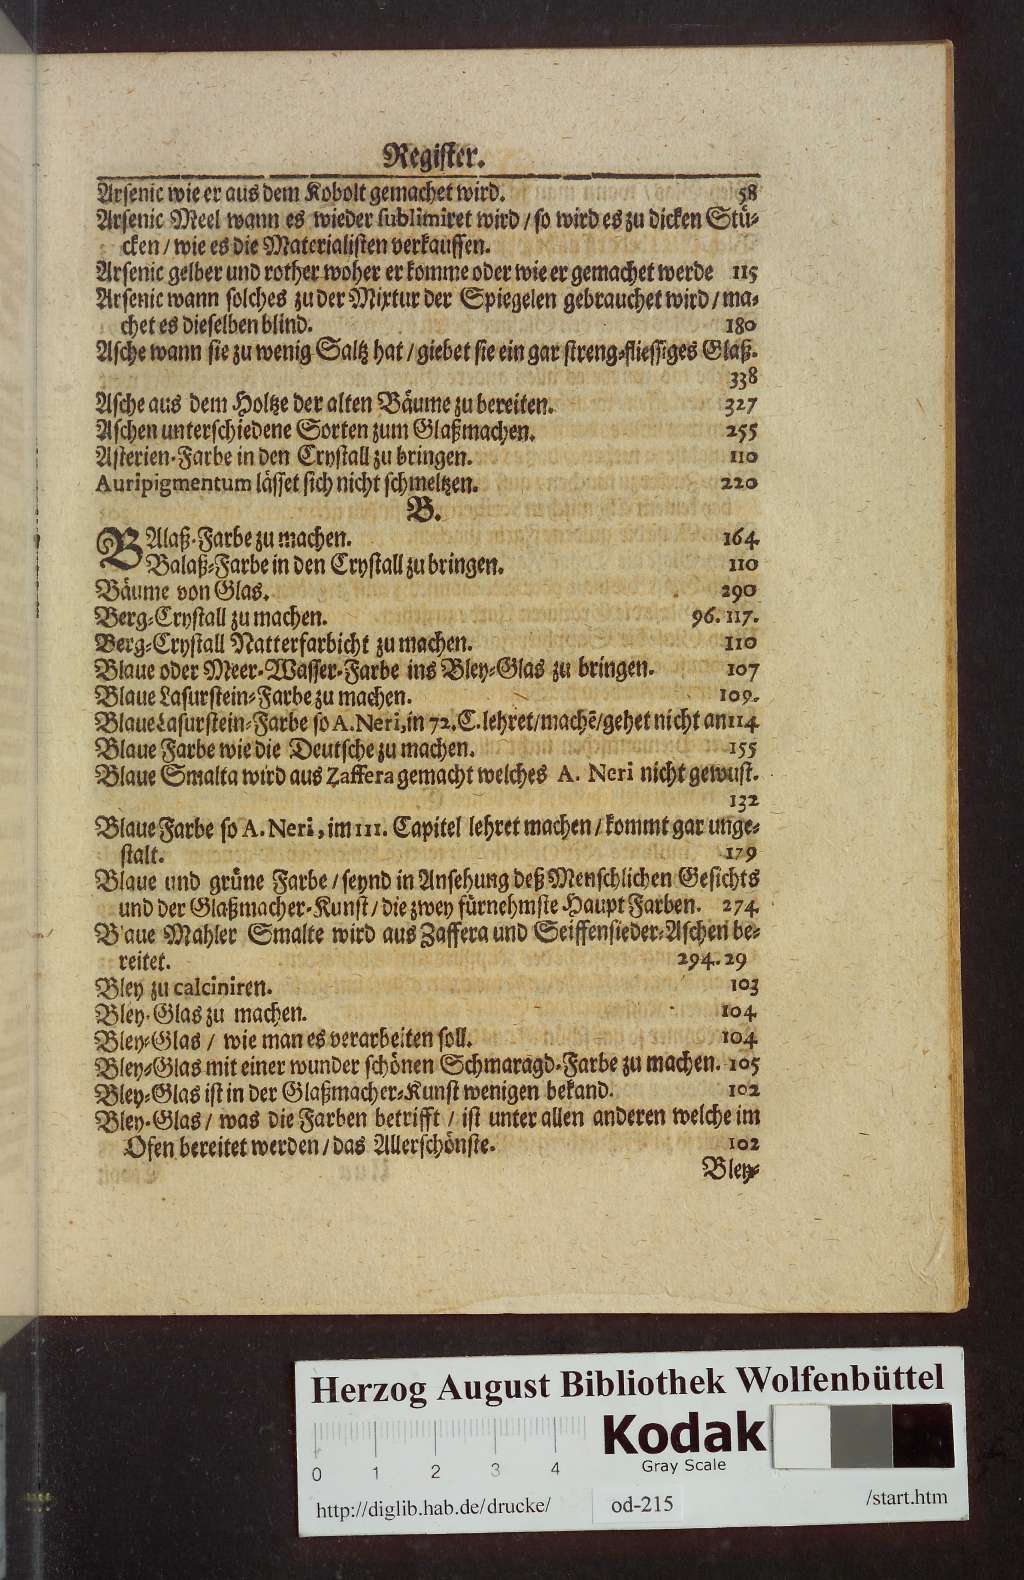 Register.
Arsenic wie er aus dem Kobolt gemachet wird. 58
Arsenic Meel wann es wieder sublimiret wird / so wird es zu dicken Stü-
cken / wie es die Materialisten verkauffen.
Arsenic gelber und rother woher er komme oder wie er gemachet werde 115
Arsenic wann solches zu der Mixtur der Spiegelen gebrauchet wird / ma-
chet es dieselben blind. 180
Asche wann sie zu wenig Saltz hat / giebet sie ein gar streng-fliessiges Glaß.
338
Asche aus dem Holtze der alten Bäume zu bereiten. 327
Aschen unterschiedene Sorten zum Glaßmachen. 255
Asterien-Farbe in den Crystall zu bringen. 110
Auripigmentum lässet sich nicht schmeltzen. 220
B.
BAlaß-Farbe zu machen. 164
Balaß-Farbe in den Crystall zu bringen. 110
Bäume von Glas. 290
Berg-Crystall zu machen. 96. 117.
Berg-Crystall Natterfarbicht zu machen. 110
Blaue oder Meer-Wasser-Farbe ins Bley-Glas zu bringen. 107
Blaue Lasurstein-Farbe zu machen. 109.
Blaue Lasurstein-Farbe so A. Neri, in 72. C. lehret / machē / gehet nicht an 114
Blaue Farbe wie die Deutsche zu machen. 155
Blaue Smalta wird aus Zaffera gemacht welches A. Neri nicht gewust.
132
Blaue Farbe so A. Neri, im 111. Capitel lehret machen / kommt gar unge-
stalt. 179
Blaue und grüne Farbe / seynd in Ansehung deß Menschlichen Gesichts
und der Glaßmacher-Kunst / die zwey fürnehmste Haupt Farben. 274
B'aue Mahler Smalte wird aus Zaffera und Seiffensieder-Aschen be-
reitet. 294. 29
Bley zu calciniren. 103
Bley-Glas zu machen. 104
Bley-Glas / wie man es verarbeiten soll. 104
Bley-Glas mit einer wunder schönen Schmaragd-Farbe zu machen. 105
Bley-Glas ist in der Glaßmacher-Kunst wenigen bekand. 102
Bley-Glas / was die Farben betrifft / ist unter allen anderen welche im
Ofen bereitet werden / das Allerschönste. 102
Bley-
Herzog August Bibliothek Wolfenbüttel
Kodak
Gray Scale
0 1 2 3 4
http://diglib.hab.de/drucke/ od-215 /start.htm